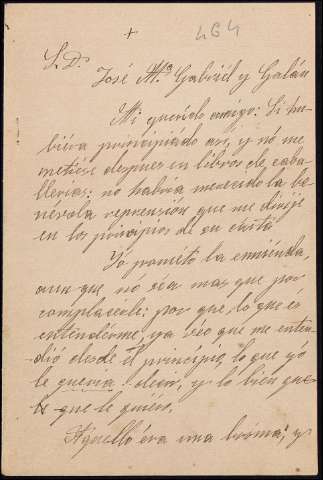 + 464
S. D.
José Mª Gabriél y Galán
Mi querido amigo: Si hu-
biéra principiádo asi, y nó me
metiése despues en libros de caba-
llerias: no habria merecido la be-
névola reprensión que me dirije
en los principios de su carta
Yó prométo la enmiénda,
aun que nó séa mas que por
complacérle: por que lo que és
entendérme, ya véo que me enten-
dió desde el principio, lo que yó
le queria decir, y lo bien que
que le quiéro.
Aquello éra una bróma, y